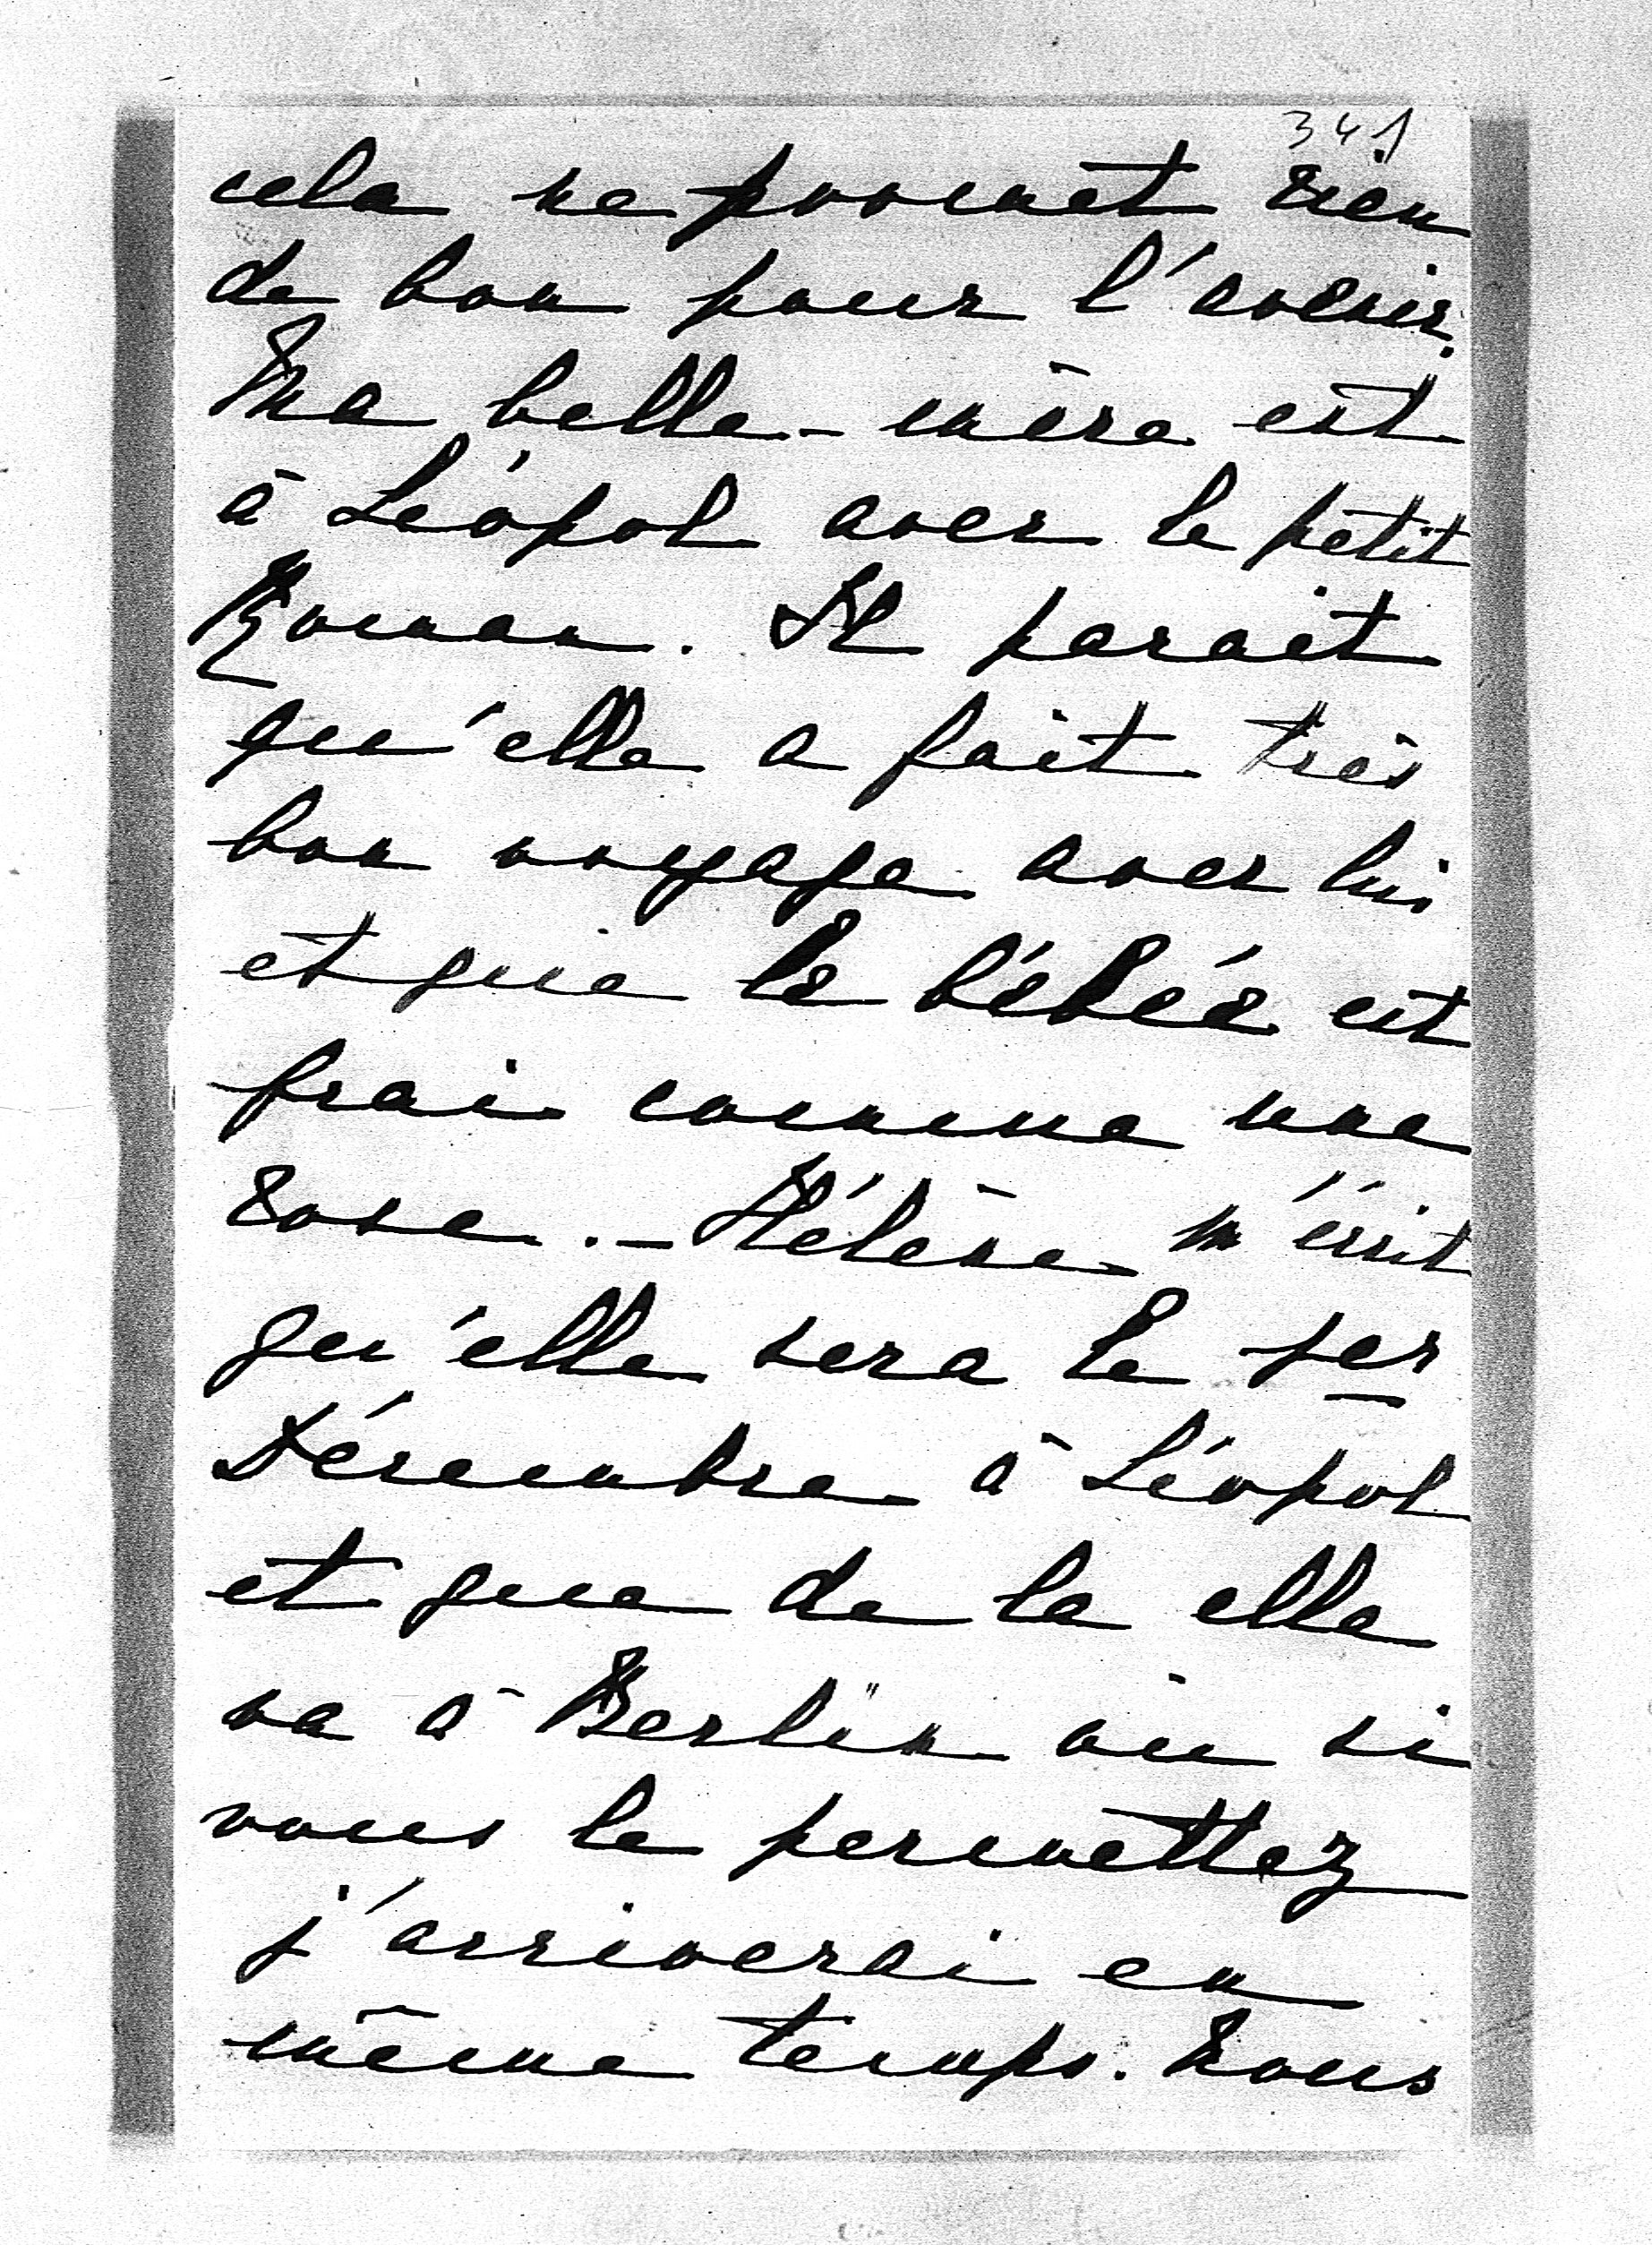 341
cela ne promet rien
de bon pour l'avenir.
Ma belle-mère est
à Léopol avec le petit
Roman. Il parait
qu'elle a fait très
bon voyage avec lui
et que le bébée est
frai comme une
rose. - Hélène m'écrit
qu'elle sera le 1er
Décembre à Léopol
et que de la elle
va à Berlin où si
vous le permettez
j'arriverai en
même temps. Nous